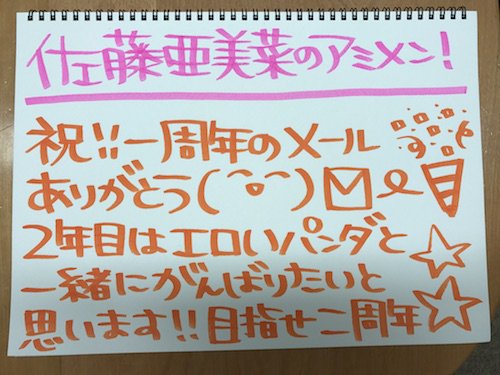 佐藤亜美菜のアミメン!
祝!!一周年のメール
ありがとう(^o^)
2年目はエロいパンダと
一緒にがんばりたいと
思います!!目指せ二周年